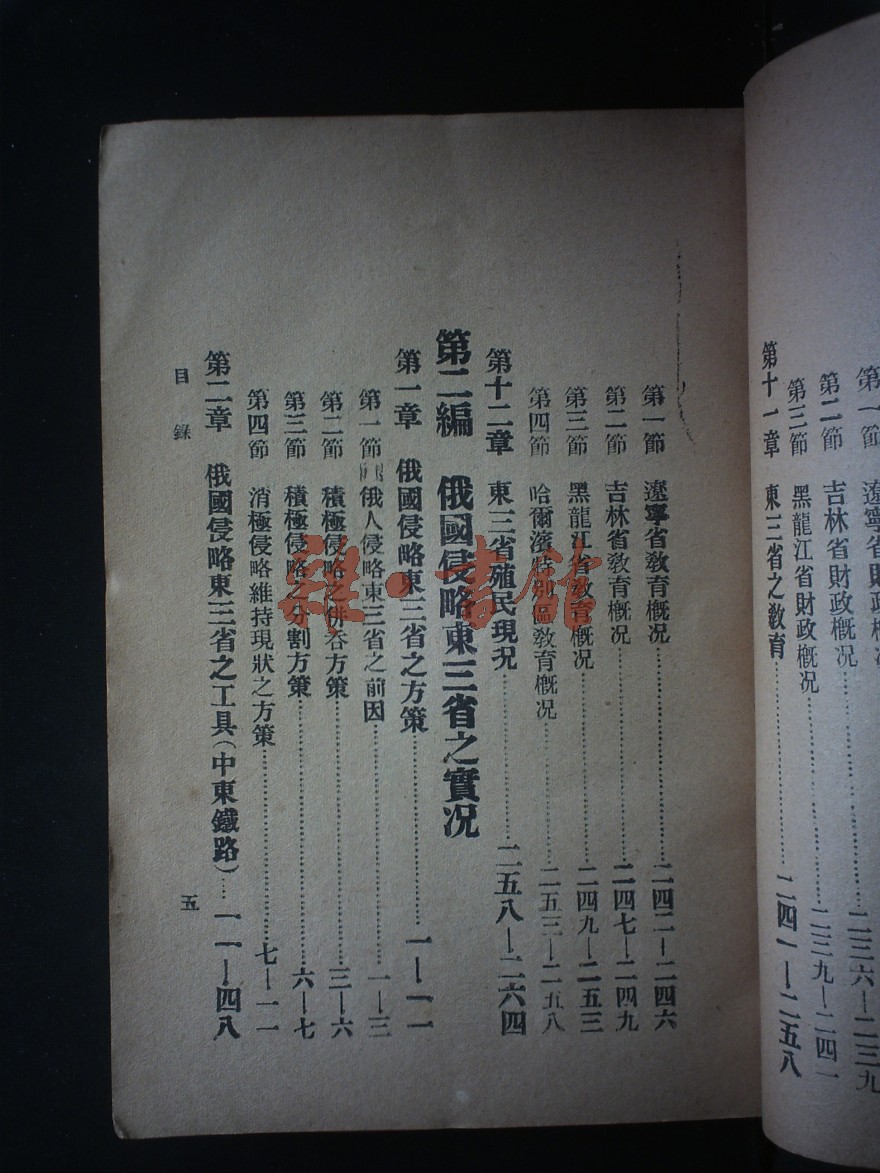 第一節 遼寧省財政槪况
二三六—二三九
第二節 吉林省財政槪况
第三節 黑龍江省財政槪况……二三九—二四一
第十一章 東三省之敎育……二四一—二五八
第一節 遼寧省敎育槪况……二四二—二四六
第二節 吉林省敎育槪况……二四七—二四九
第三節 黑龍江省敎育槪况……二四九—二五三
第四節 哈爾濱特別區敎育槪况……二五三—二五八
第十二章 東三省殖民現况……二五八—二六四
第二編 俄國侵略東三省之實况
第一章 俄國侵略東三省之方策……一—一一
第一節 俄人侵略東三省之前因……一—三
第二節 積極侵略之併吞方策……三—六
第三節 積極侵略之分割方策……六—七
第四節 消極侵略維持現狀之方策……七—一一
第二章 俄國侵略東三省之工具(中東鐵路)……一一—四八
目錄
五
雜·書館